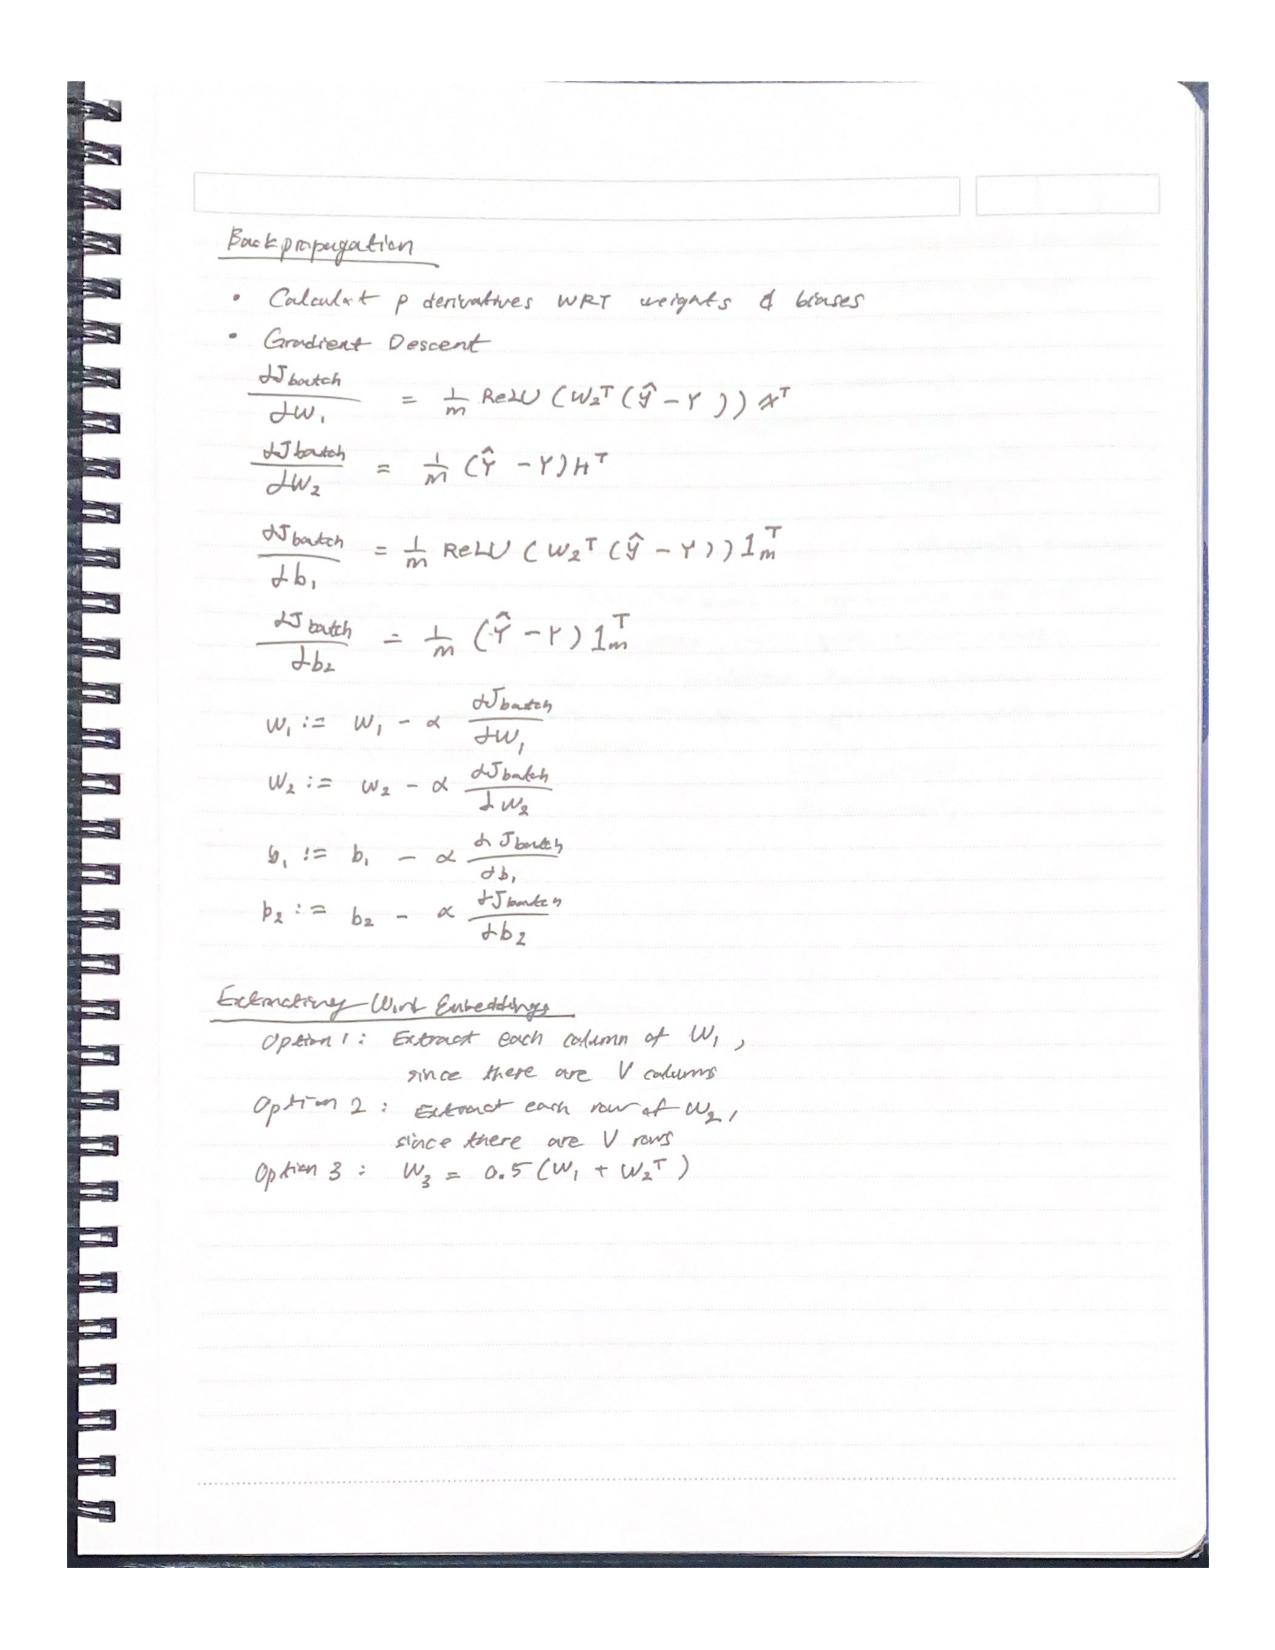 Backpropagation
• Calculat p derivatives WRT weights & biases
• Gradient Descent
∂J batch / ∂W₁ = 1/m ReLU (W₂ᵀ (ŷ − Y)) Xᵀ
∂J batch / ∂W₂ = 1/m (Ŷ − Y) Hᵀ
∂J batch / ∂b₁ = 1/m ReLU (W₂ᵀ (ŷ − Y)) 1ₘᵀ
∂J batch / ∂b₂ = 1/m (Ŷ − Y) 1ₘᵀ
W₁ := W₁ − α ∂J batch / ∂W₁
W₂ := W₂ − α ∂J batch / ∂W₂
b₁ := b₁ − α ∂J batch / ∂b₁
b₂ := b₂ − α ∂J batch / ∂b₂
Extracting Word Embeddings
Option 1: Extract each column of W₁,
since there are V columns
Option 2: Extract each row of W₂,
since there are V rows
Option 3: W₃ = 0.5 (W₁ + W₂ᵀ)